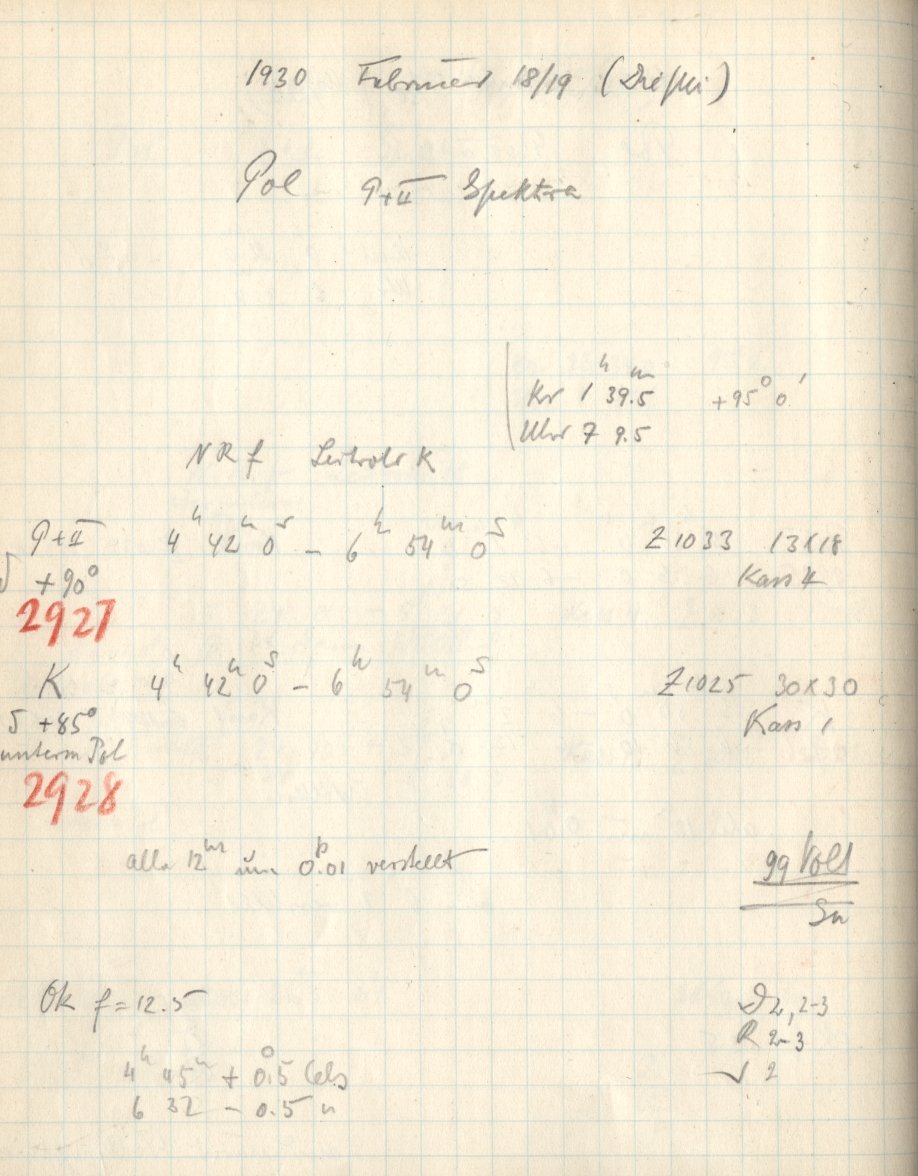 1930 Februar 18/19
Pol P+II Spektra
h m
Kr 1 39.5 +95° 0'
Uhr 7 9.5
NRf Leitrohr K
P+II 4h 42m 0s - 6h 54m 0s Z1033 13x18
δ +90° Kass 4
2927
K 4h 42m 0s - 6h 54m 0s Z1025 30x30
δ +85° Kass 1
unterm Pol
2928
alle 12m um 0p.01 verstellt 99 Volt
Sn
Ok f=12.5 2,2-3
R 2-3
4h 45m + 0°.5 Cels 2
6 32 - 0.5 "